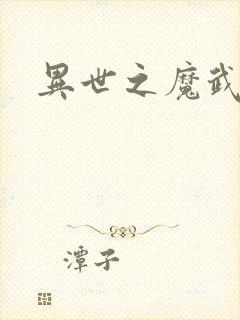 異世之魔武
潭子